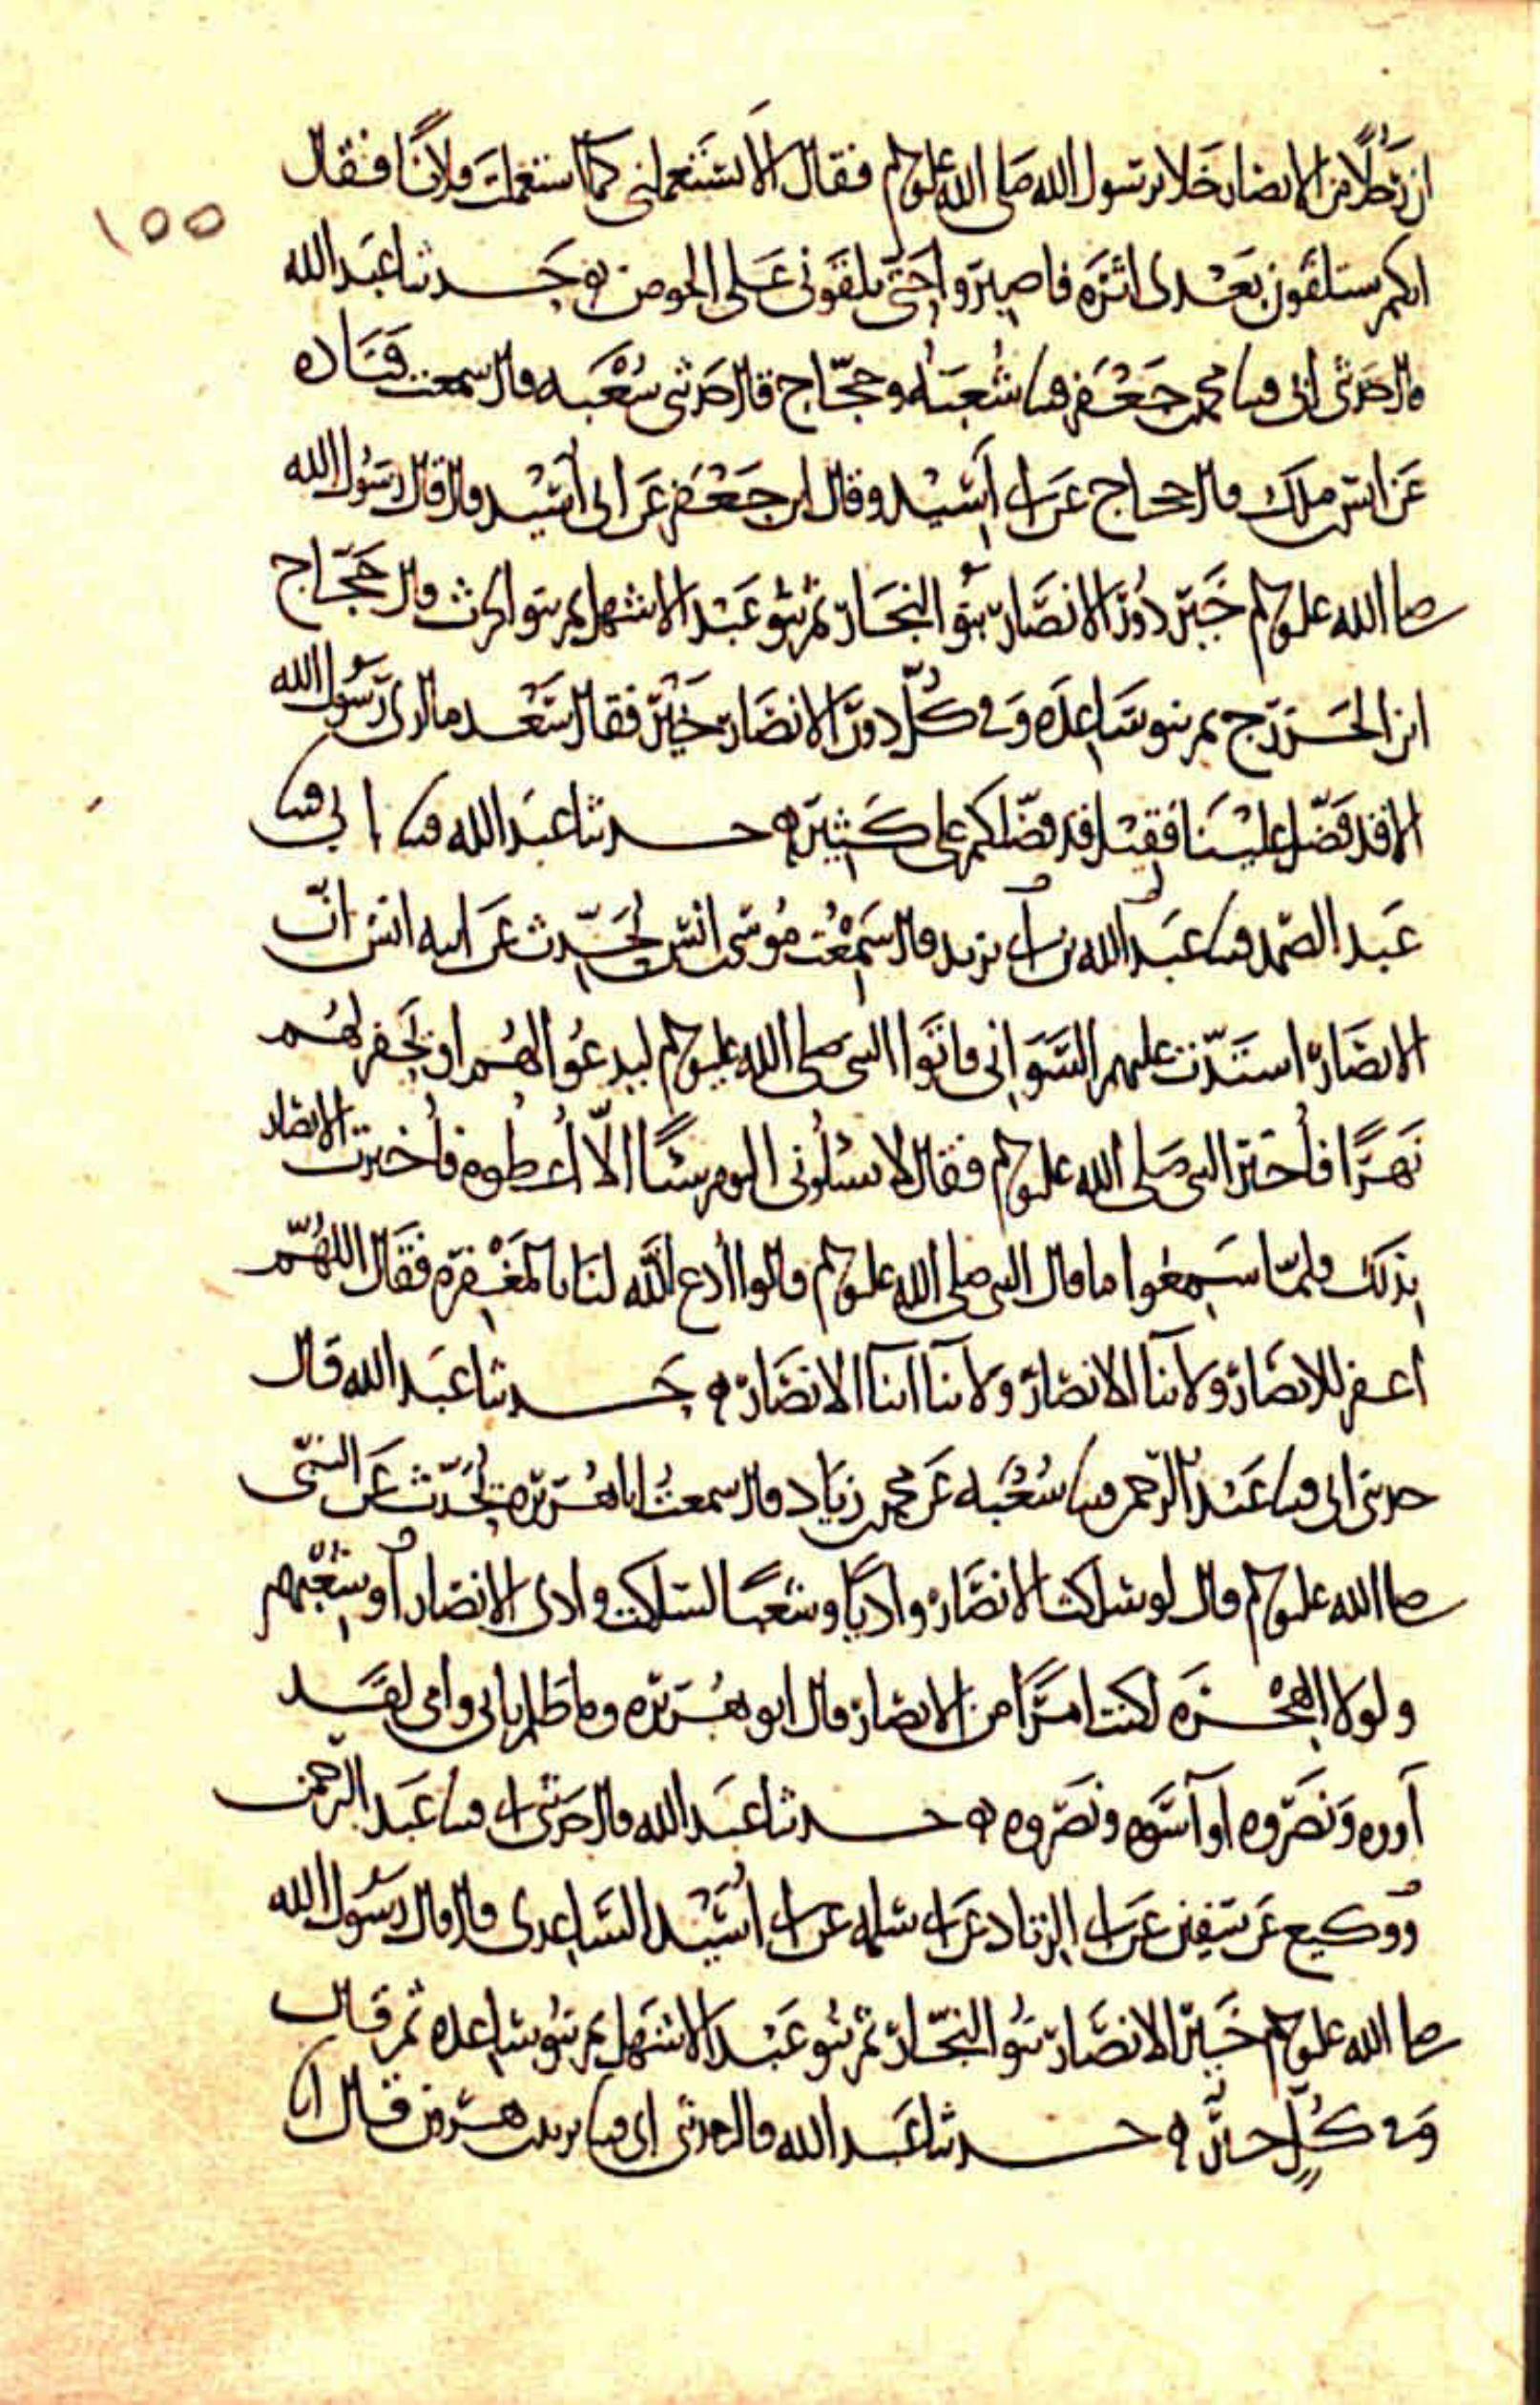 ان رجلا من الانصار خلا برسول الله صلى الله عليه وسلم فقال الا تستعملني كما استعملت فلانا فقال
١٥٥
انكم ستلقون بعدي اثرة فاصبروا حتى تلقوني على الحوض ه حدثنا عبد الله
قال حدثني ابي قثنا محمد بن جعفر قثنا شعبة وحجاج قال حدثني شعبة قال سمعت قتاده
عن انس بن ملك قال حجاج عن ابي أسيد وقال ابن جعفر عن ابي أسيد قال قال رسول الله
صلى الله عليه وسلم خير دور الانصار بنو النجار ثم بنو عبد الاشهل ثم بنو الحرث قال حجاج
ابن الخزرج ثم بنو ساعدة وفي كل دور الانصار خير فقال سعد ما ارى رسول الله
الا قد فضل علينا فقيل قد فضلكم على كثير ه حدثنا عبد الله قثنا ابي قثنا
عبد الصمد قثنا عبد الله بن ابي يزيد قال سمعت موسى بن انس يحدث عن ابيه انس ان
الانصار اشتدت عليهم السواني فاتوا النبي صلى الله عليه وسلم ليدعوا لهم او يحفر لهم
نهرا فأخبر النبي صلى الله عليه وسلم فقال لا يسلوني اليوم شيئا الا أعطوه فأخبرت الانصار
بذلك فلما سمعوا ما قال النبي صلى الله عليه وسلم قالوا ادع الله لنا بالمغفرة فقال اللهم
اغفر للانصار ولابنا الانصار ولابنا ابنا الانصار ه حدثنا عبد الله قال
حدثني ابي قثنا عبد الرحمن قثنا شعبه عن محمد بن زياد قال سمعت ابا هريرة يحدث عن النبي
صلى الله عليه وسلم قال لو سلكت الانصار واديا وشعبا لسلكت وادي الانصار أو شعبهم
ولولا الهجرة لكنت امرا من الانصار قال ابو هريرة وما ظلم بابي وامي لقد
آووه ونصروه او آسوه ونصروه ه حدثنا عبد الله قال حدثني ابي قثنا عبد الرحمن
ووكيع عن سفين عن ابي الزناد عن ابي سلمه عن ابي أسيد الساعدي قال قال رسول الله
صلى الله عليه وسلم خير الانصار بنو النجار ثم بنو عبد الاشهل ثم بنو ساعده ثم قال
وفي كل خير ه حدثنا عبد الله قال حدثني ابي قثنا يزيد بن هرون قال انا